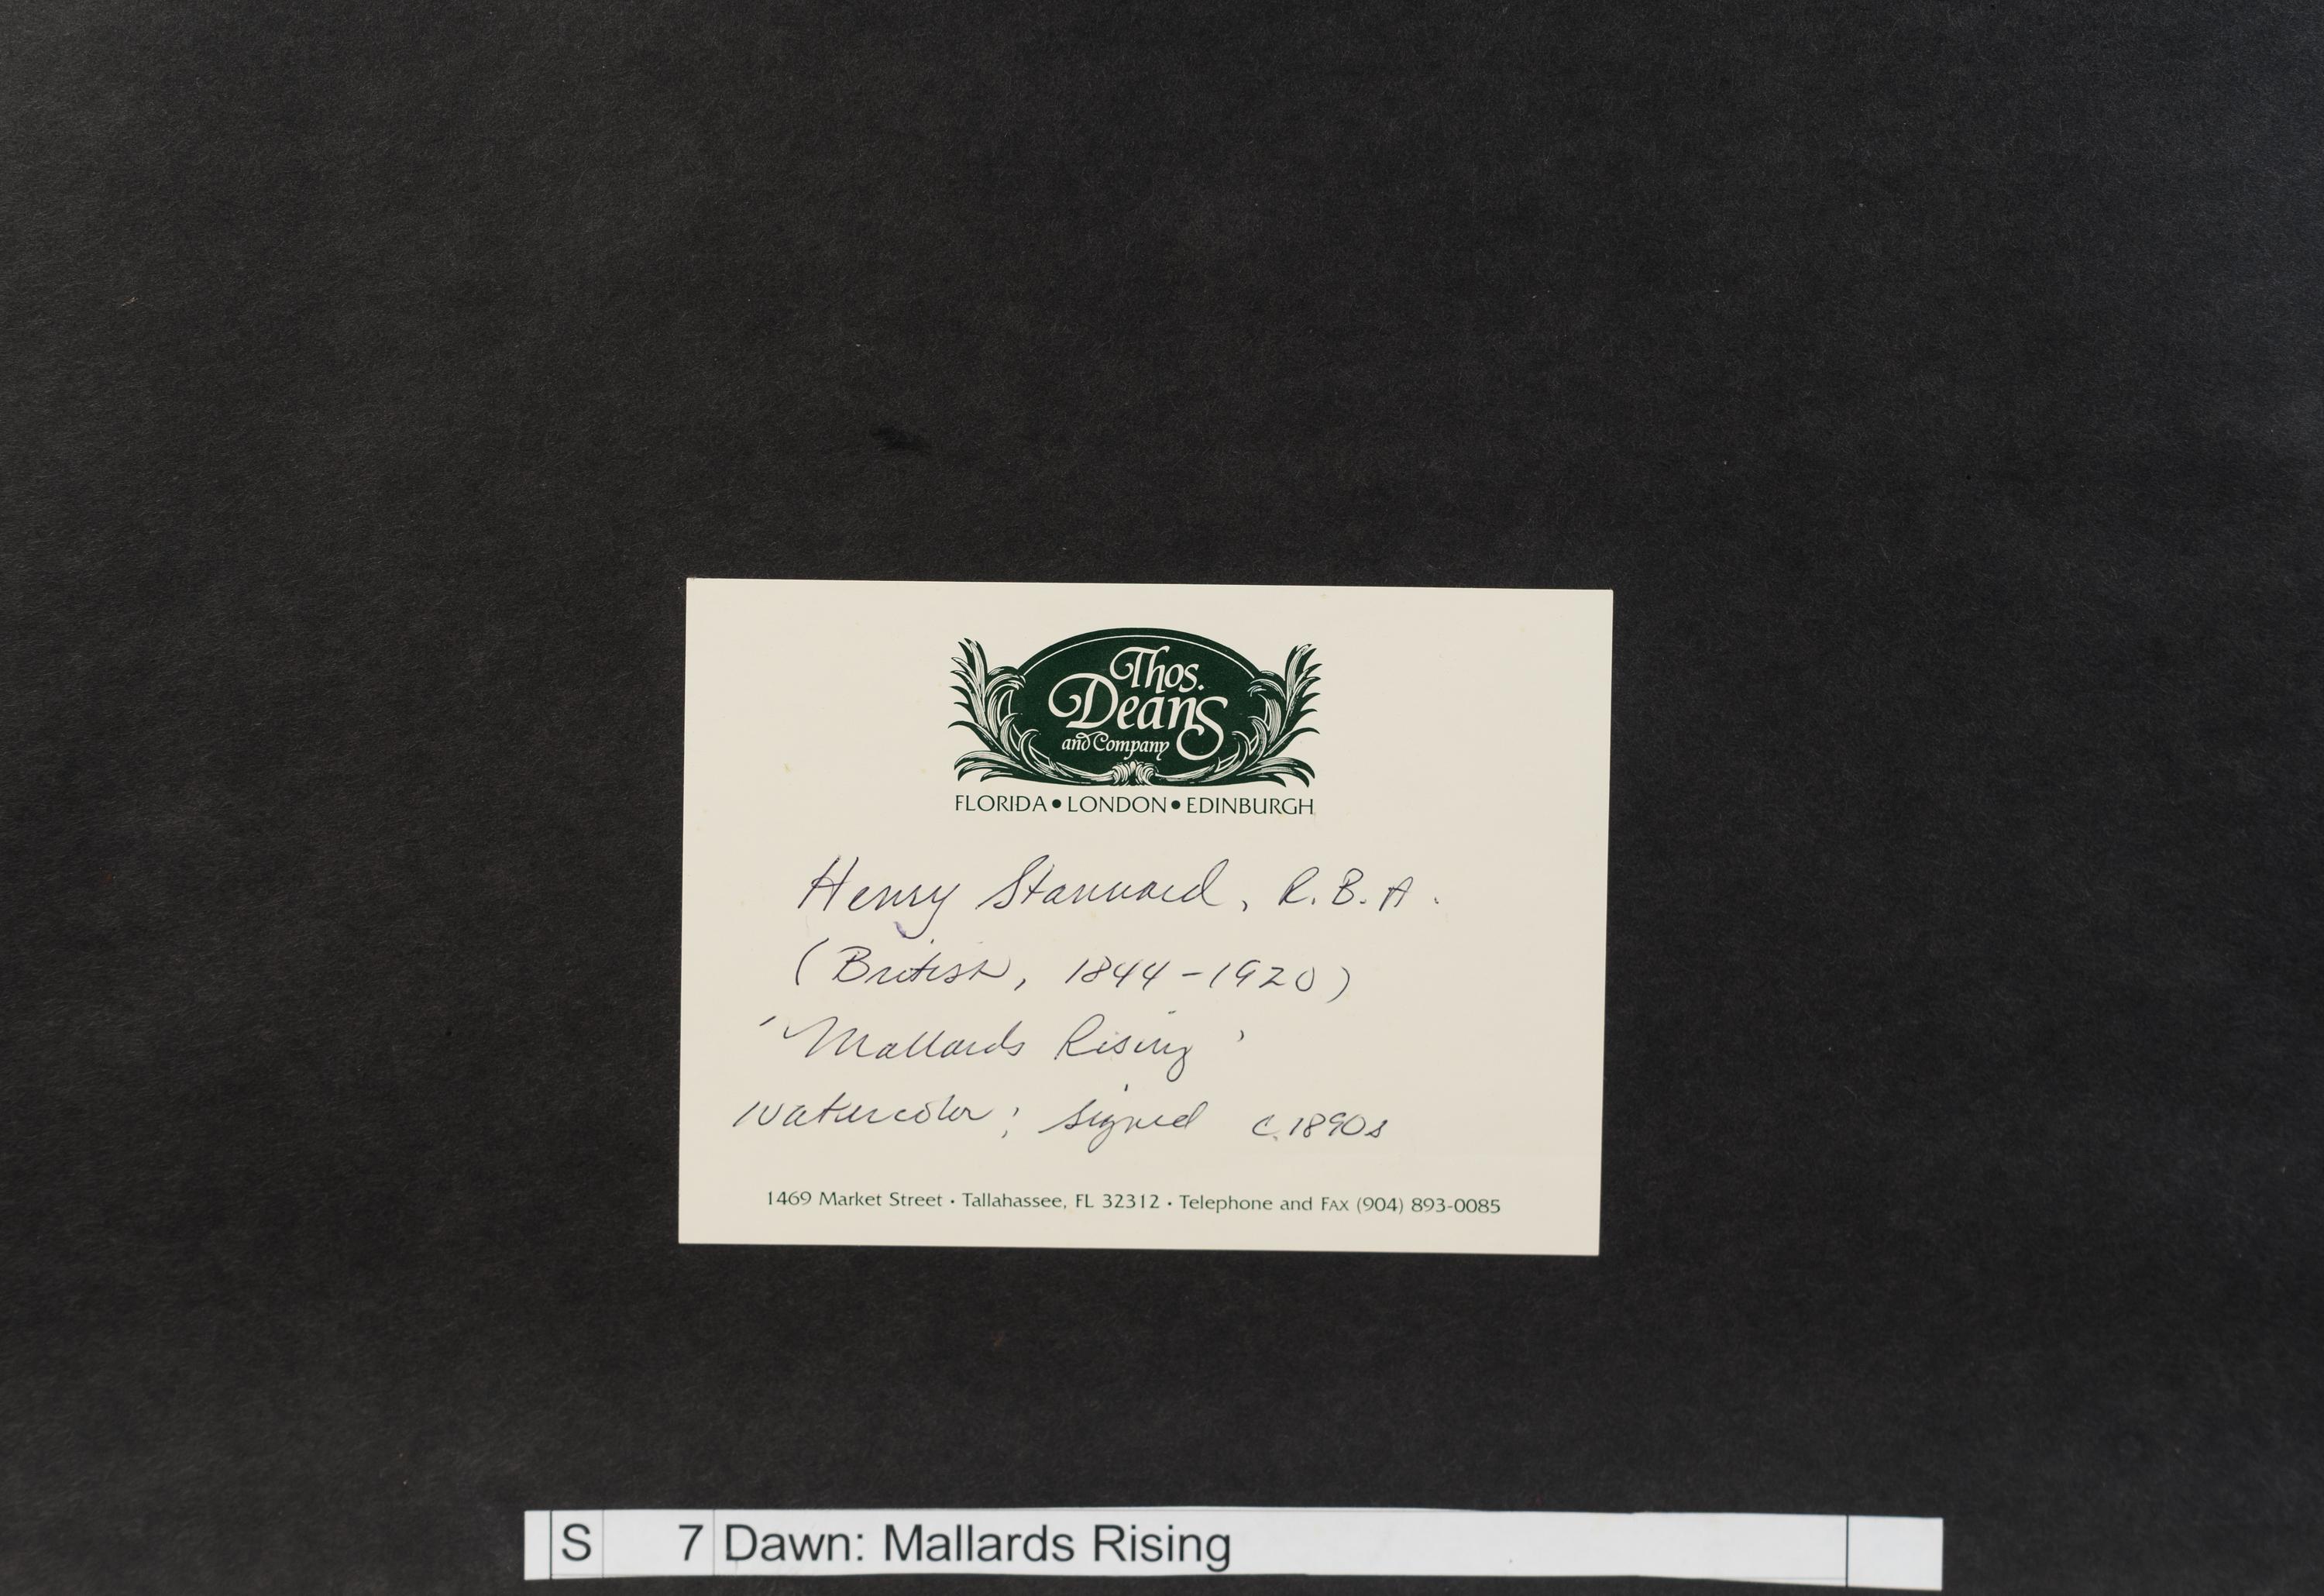 Thos.
Deans
and Company
FLORIDA • LONDON • EDINBURGH
Henry Stannard, R.B.A.
(British, 1844-1920)
'Mallards Rising'
Watercolor; signed c.1890s
1469 Market Street • Tallahassee, FL 32312 • Telephone and FAX (904) 893-0085
S 7 Dawn: Mallards Rising